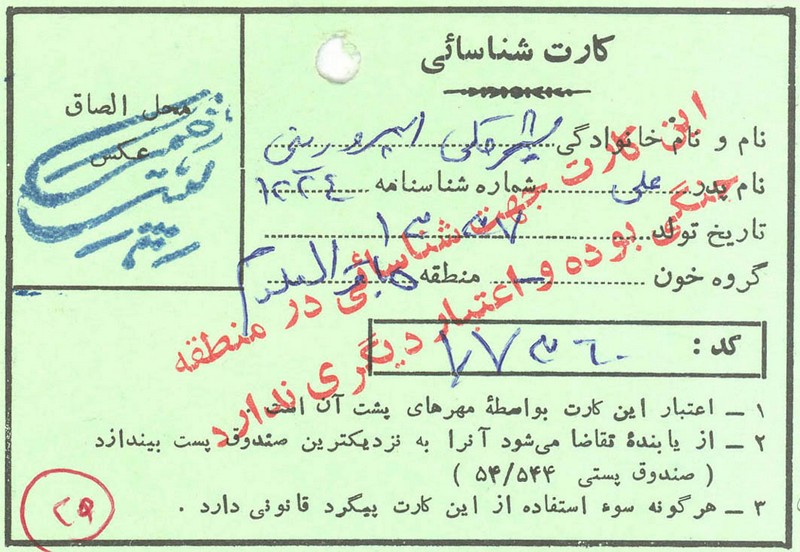 کارت شناسائی
محل الصاق
عکس
نام و نام خانوادگی
نام پدر علی شماره شناسنامه ۱۲۲۴
تاریخ تولد
گروه خون منطقه باقرالعلوم
کد :
این کارت جهت شناسائی در منطقه
جنگی بوده و اعتبار دیگری ندارد
۱ ــ اعتبار این کارت بواسطهٔ مهرهای پشت آن است .
۲ ــ از یابندهٔ تقاضا می‌شود آنرا به نزدیکترین صندوق پست بیندازد
( صندوق پستی ۵۴/۵۴۴ )
۳ ــ هرگونه سوء استفاده از این کارت پیگرد قانونی دارد .
۲۹